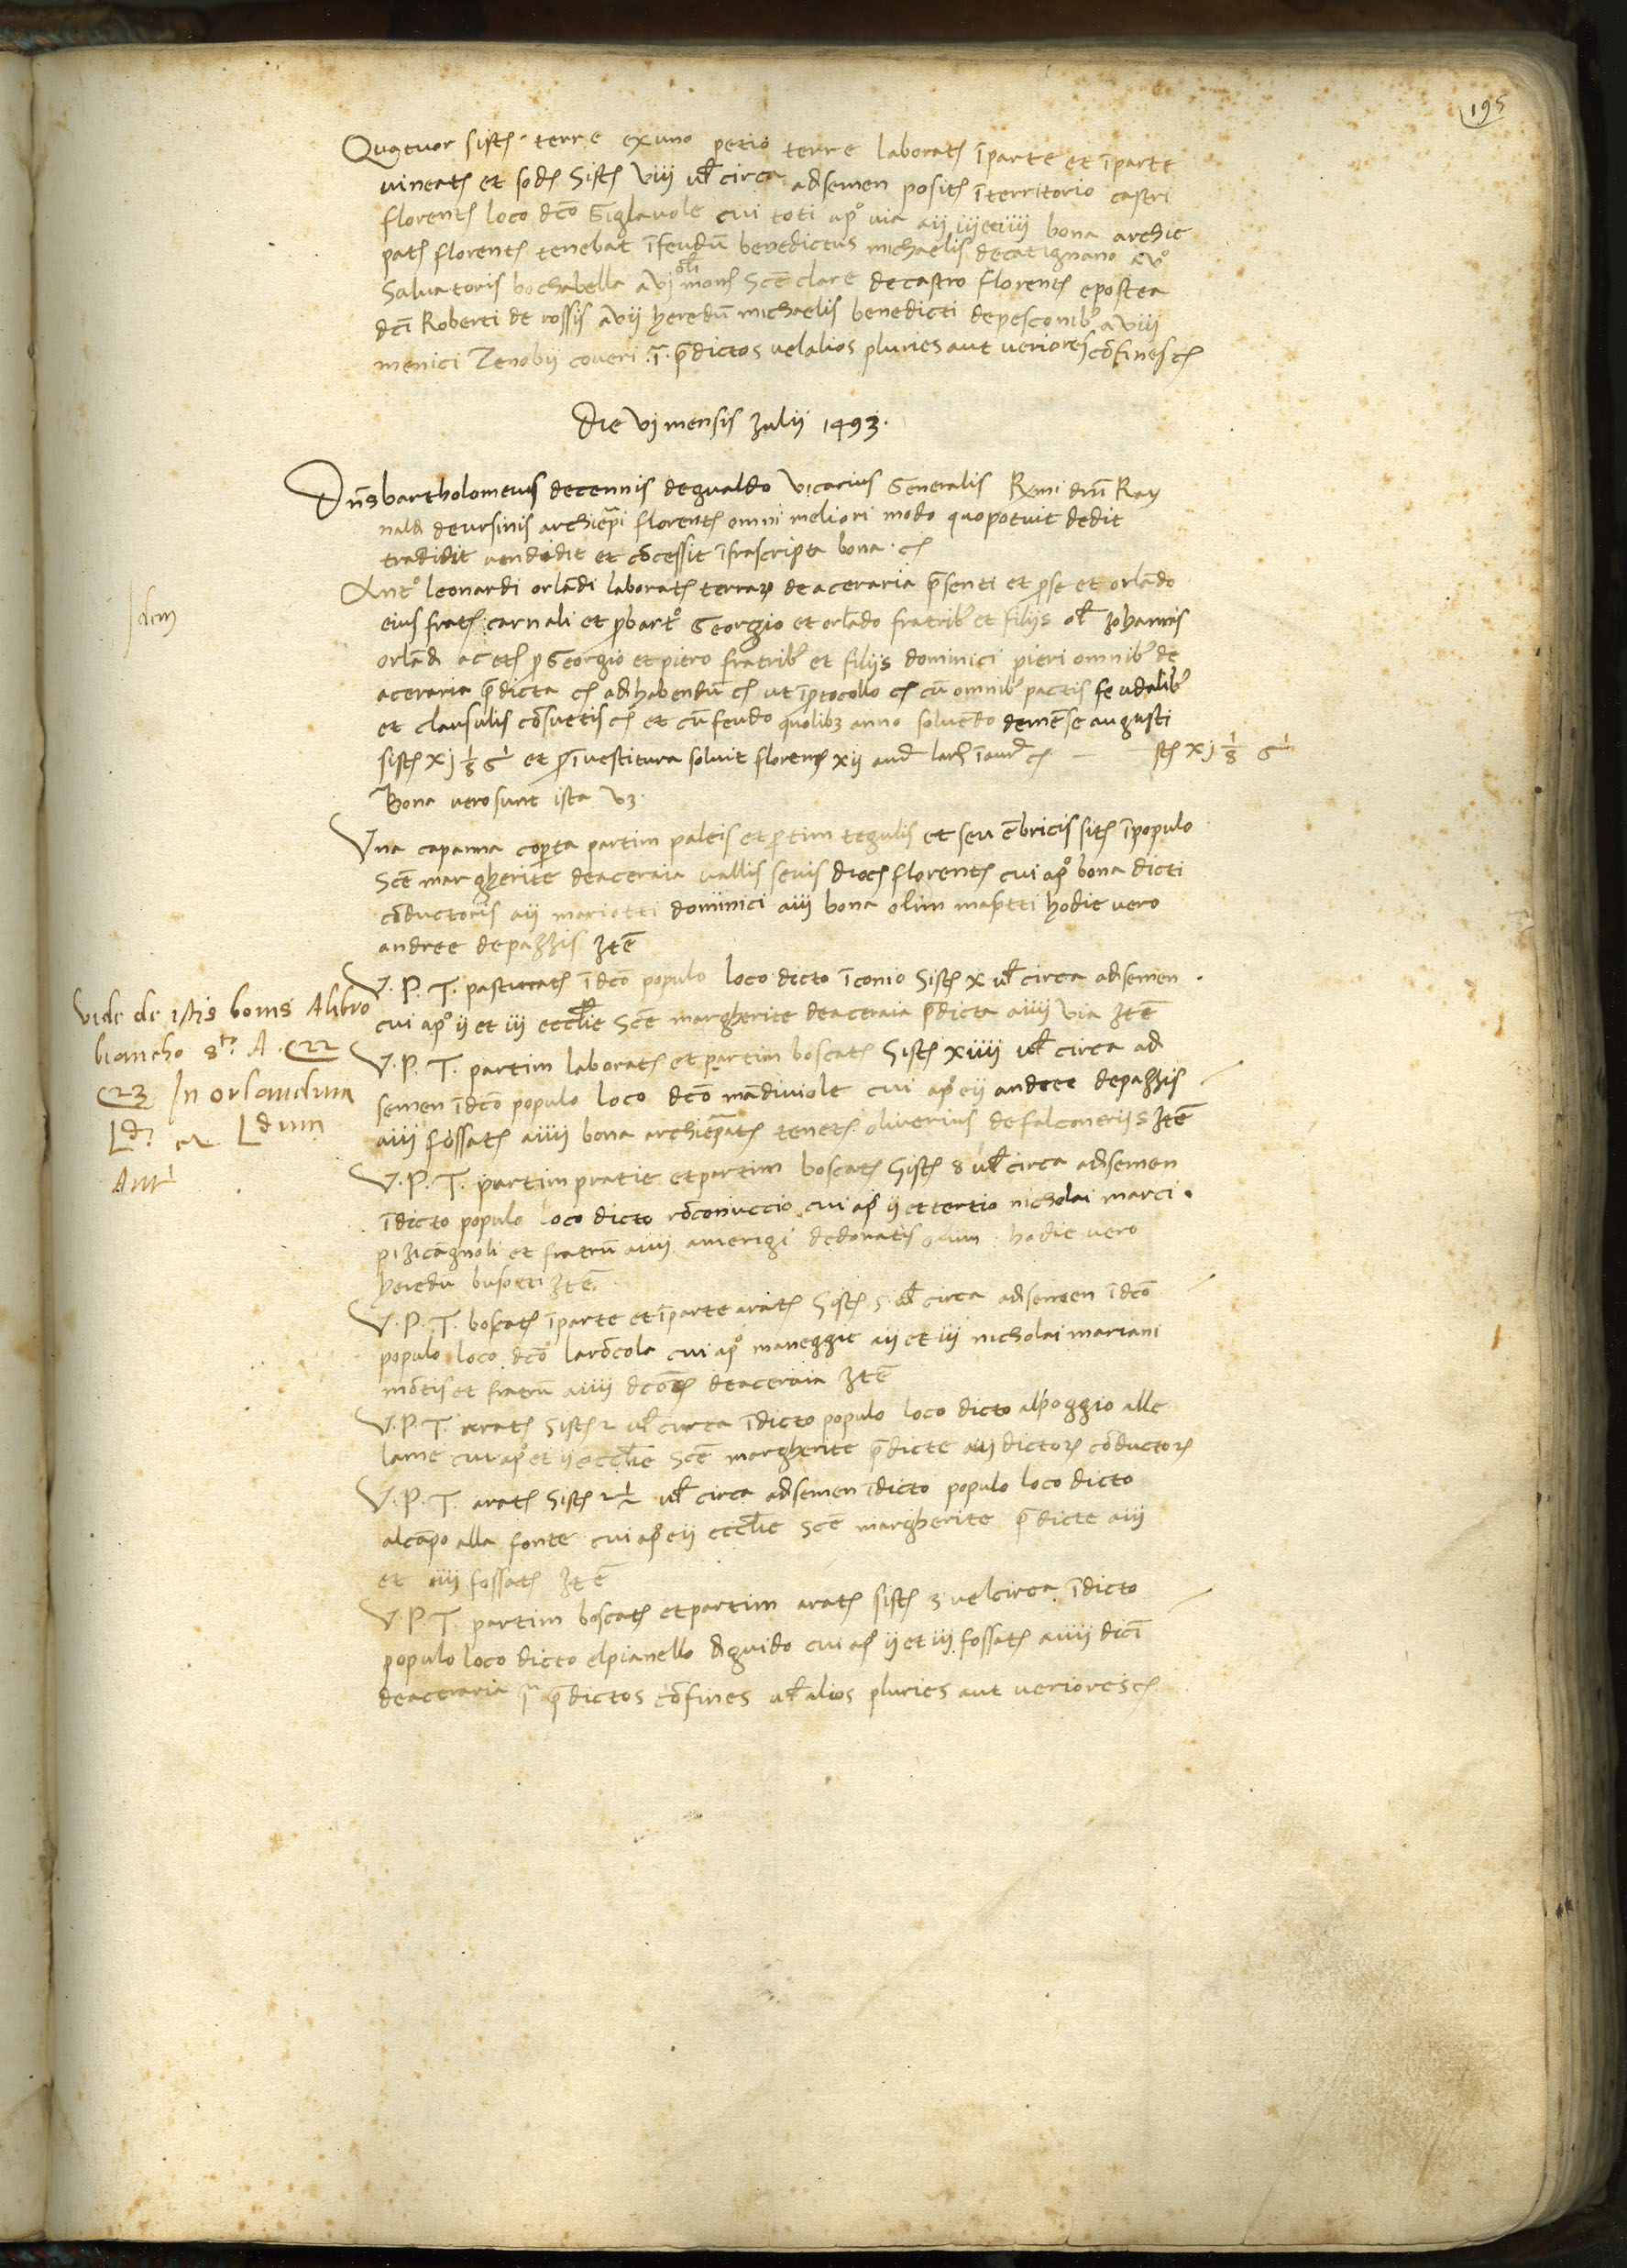 195
Quatuor sistꝭ terre ex uno petio terre laboratꝭ ī parte et ī parte
vineatꝭ et sodꝭ Sistꝭ VIIJ ul̄ circa ad semen positꝭ ī territorio castri
florentꝭ loco dc̄o Giglavole cui toti apº via aij iij et iiij bona archie
patꝭ florentꝭ tenebat ī feudū benedictus michaelis decatignano a vº
Salvatoris bochabella a vj olī monꝭ Scē clare de castro florentꝭ e postea
dn̄i Roberti de rossis a vij heredū michaelis benedicti depesconibꝰ a viij
menici Zenobij coveri ī prēdictos vel alios pluries aut veriores cōfines cꝭ
Die vj mensis Julij 1493.
Dn̄s bartholomeus decennis degualdo Vicarius Generalis Rmi dn̄i Ray
naldi de ursinis archiep̄i florentꝭ omni meliori modo quo potuit dedit
tradidit vendidit et cōcessit īfrascripta bona cꝭ
Idem
Antº leonardi orlādi laboratꝭ terrarꝫ de aceraria p̄senti et ꝓ se et orlādo
eius fratꝭ carnali et ꝓ bartº Georgio et orlādo fratribꝰ et filijs ol̄ Johannis
orlādi ac etꝭ ꝓ Georgio et piero fratribꝰ et filijs dominici pieri omnibꝰ de
aceraria p̄dicta cꝭ ad habendū cꝭ ut ī ꝓtocollo cꝭ cū omnibꝰ pactis feudalibꝰ
et clausulis cōsuetis cꝭ et cū feudo quolibꝫ anno solvendo de mēse augusti
sistꝭ xj 1/8 gⁱ et ꝓ īvestitura solvit florenꝭ xij aurī larḡ ī aurō cꝭ — stꝭ xj 1/8 gⁱ
Bona vero sunt ista vꝫ.
Una capanna coꝑta partim paleis et ꝑtim tegulis et seu ēbricis sitꝭ ī populo
Scē margherite deaceraia vallis sevis diocꝭ florentꝭ cui apº bona dicti
cōductoris aij mariotti dominici aiij bona olim masetti hodie vero
andree depazzis Itē
Vide de istis bonis Alibro
biancho 8to A c 22
c 23 In orlandum
Ldi et Ldum
Antⁱ
V. P. T. pasturatꝭ ī dc̄o populo loco dicto ī conio Sistꝭ x ul̄ circa ad semen
cui apº ij et iij eccl̄ie Scē margherite deaceraia p̄dicta aiiij via Itē
V. P. T. partim laboratꝭ et partim boscatꝭ Sistꝭ xiiij ul̄ circa ad
semen ī dc̄o populo loco dc̄o mādiviole cui apº eij andree depazzis
aiij fossatꝭ aiiij bona archiep̄atꝭ tenetꝭ oliverius defalconerijs Itē
V. P. T. partim pratie et partim boscatꝭ Sistꝭ 8 ul̄ circa ad semen
ī dicto populo loco dicto rōconuccio cui apº ij et tertio nicholai marci
pizicāgnoli et fratrū aiiij amerigi dedonatis olim hodie vero
heredū busotti Itē
V. P. T. boscatꝭ ī parte et ī parte aratꝭ Sistꝭ 5 ul̄ circa ad semen ī dc̄o
populo loco dc̄o larōcola cui apº maneggie aij et iij nicholai mariani
mōtis et fratrū aiiij dc̄orꝫ deaceraia Itē
V. P. T. aratꝭ Sistꝭ 2 ul̄ circa ī dicto populo loco dicto alpoggio alle
lame cui apº et ij eccl̄ie Scē margherite p̄dicte aiij dictorꝫ cōductorꝫ
V. P. T. aratꝭ Sistꝭ 2 1/2 ul̄ circa ad semen ī dicto populo loco dicto
alcāpo alla fonte cui apº eij eccl̄ie Scē margherite p̄dicte aiij
et iiij fossatꝭ Itē
V. P. T. partim boscatꝭ et partim aratꝭ sistꝭ 3 vel circa ī dicto
populo loco dicto elpianello di guido cui apº ij et iij fossatꝭ aiiij dicī
deaceraria ī p̄dictos cōfines ul̄ alios pluries aut veriores cꝭ